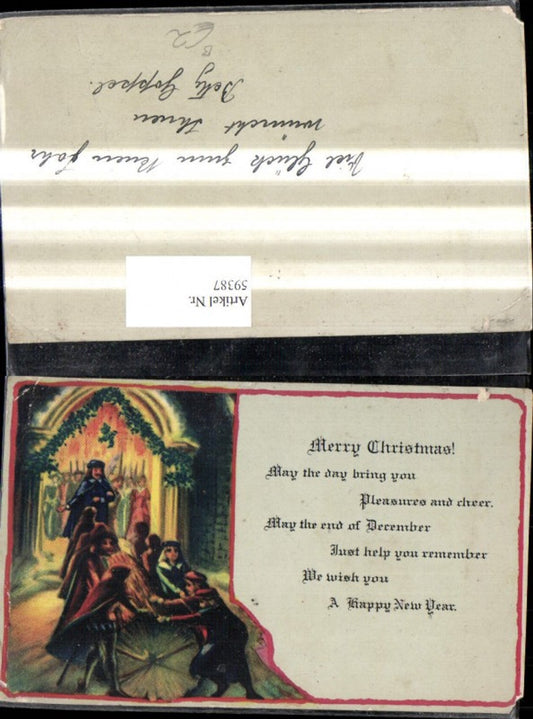 Viel Glück zum Neuen Jahr
wünscht Ihnen
Betty Goppel.
62
Artikel Nr.
59387
Merry Christmas!
May the day bring you
Pleasures and cheer,
May the end of December
Just help you remember
We wish you
A Happy New Year.